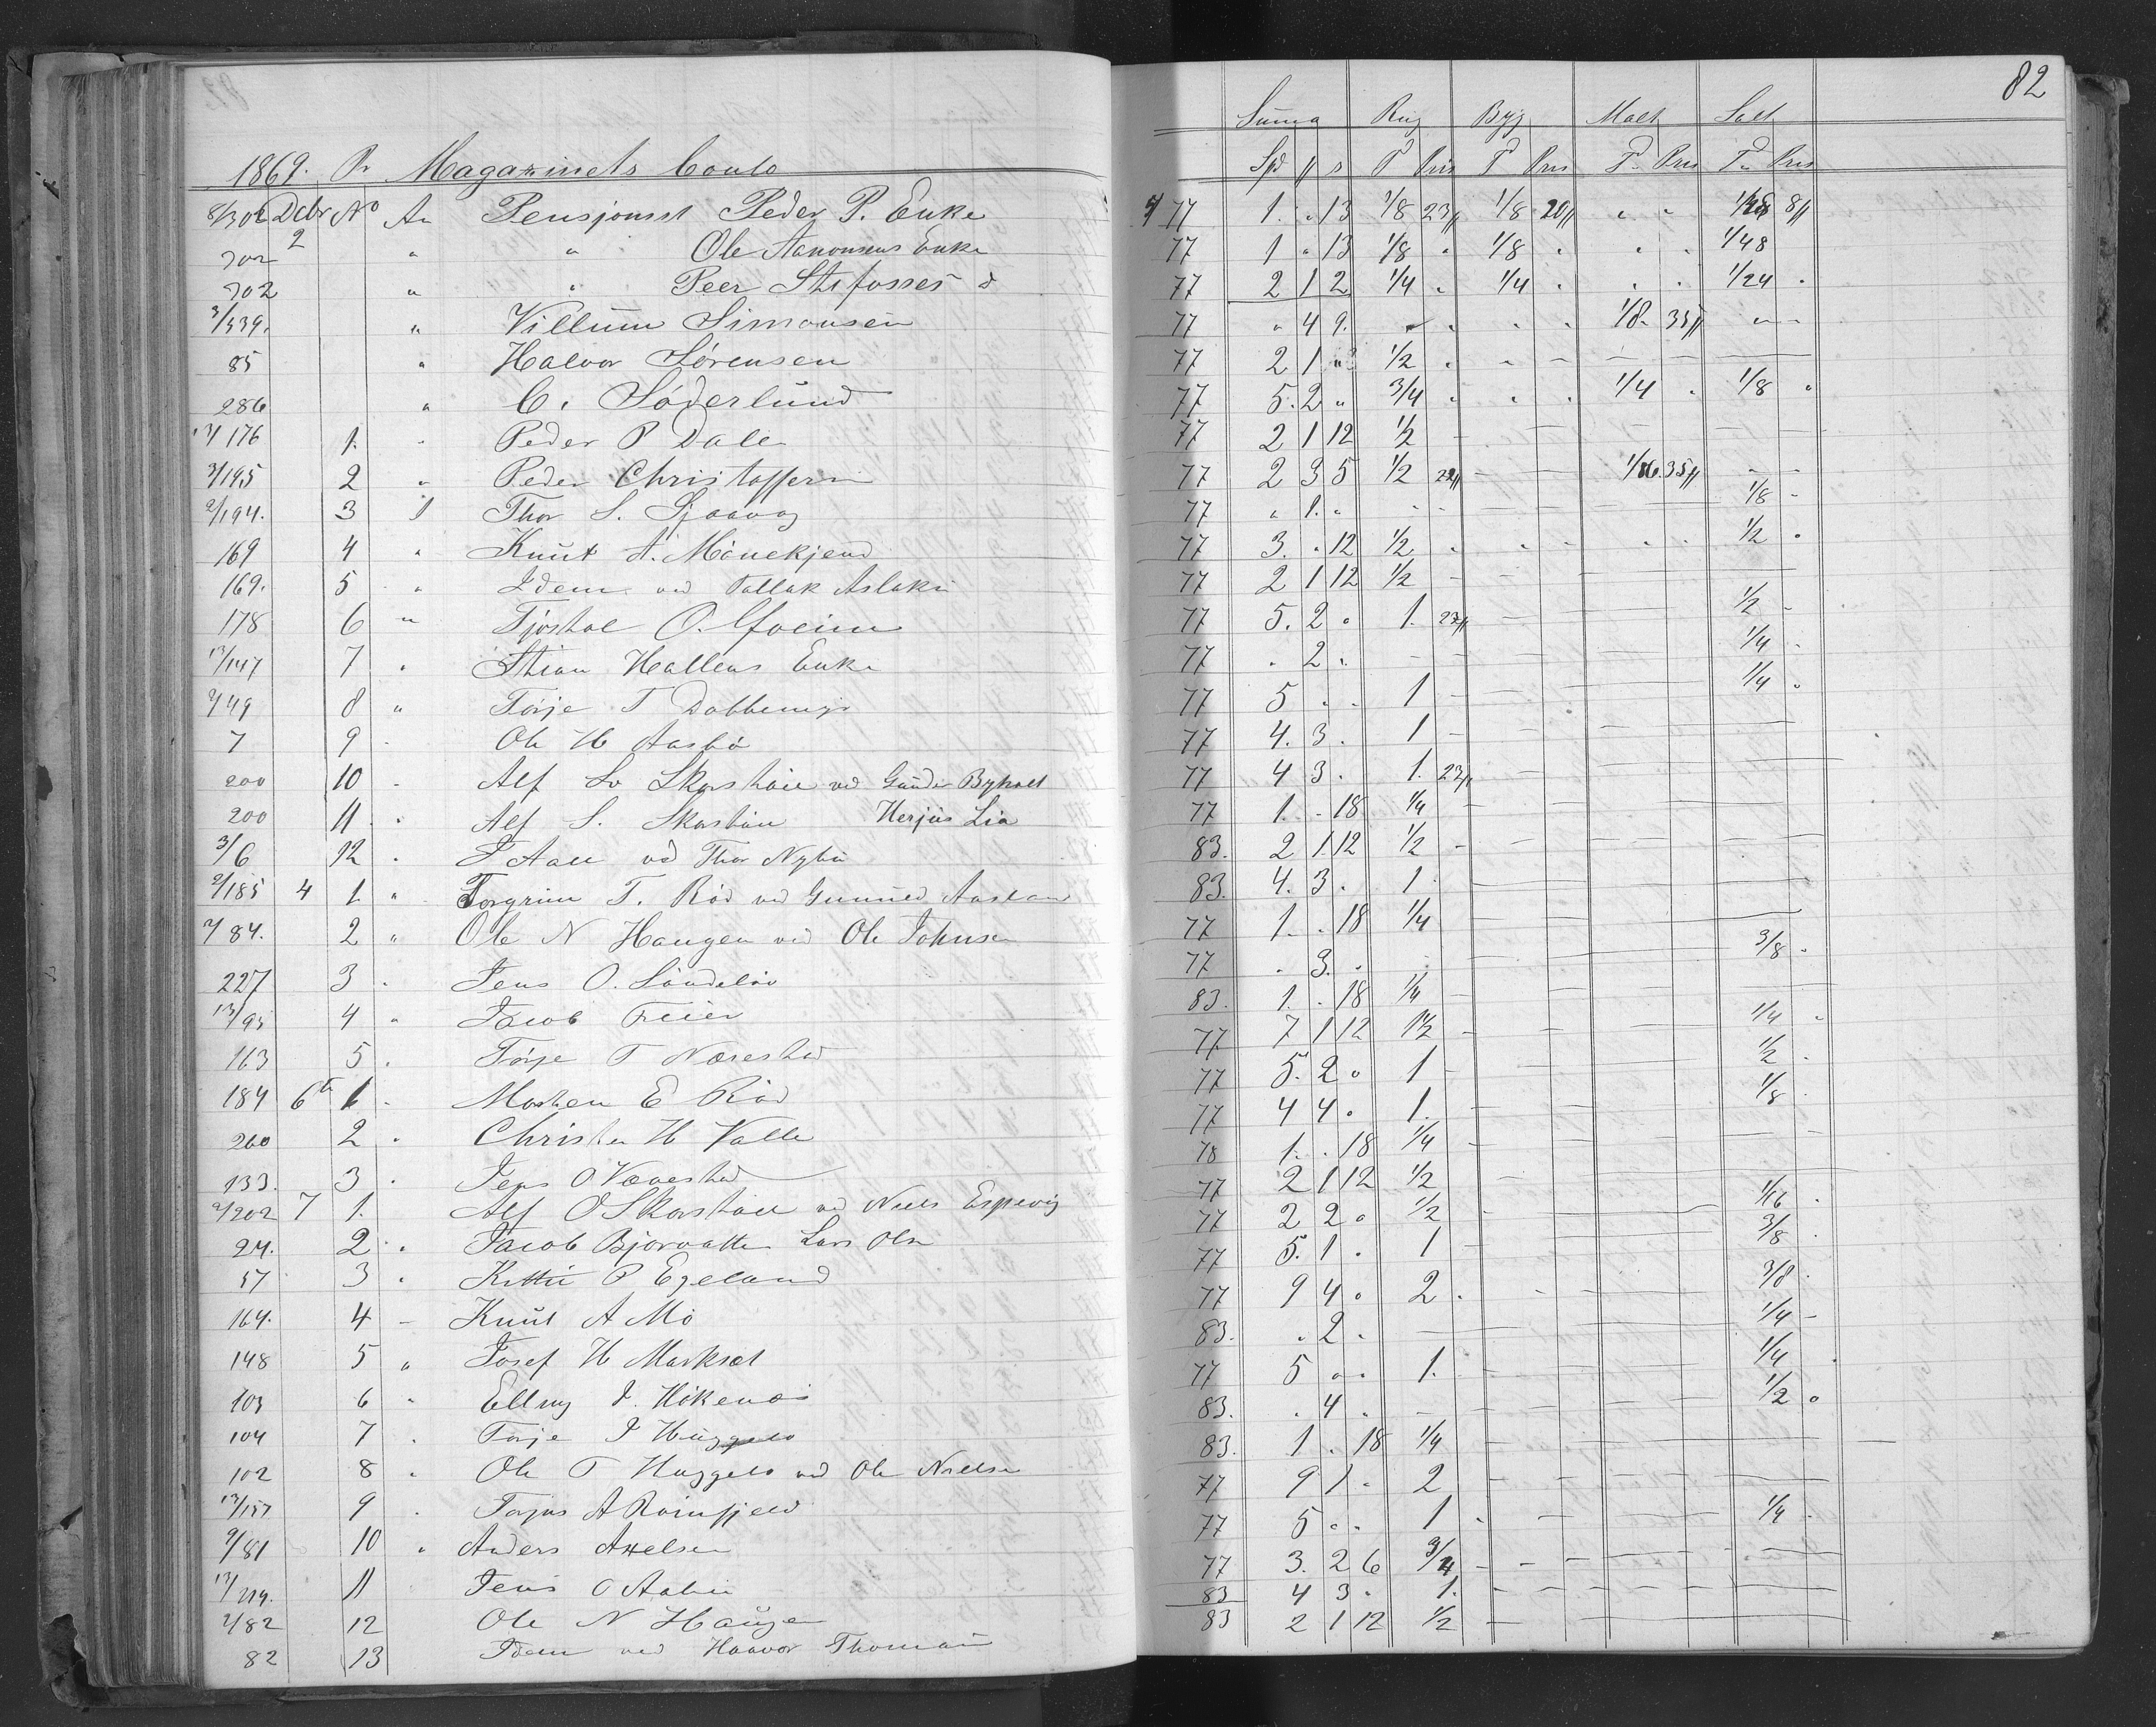 82
Summa Rug Byg Malt Salt
1869. Pr Magazinets Conto Spd # s T Pris T Pris T Pris T Pris
8/302 Dcbr No An Pensjonist Peder P. Enke 77 1. " 13 1/8 23# 1/8 20# " " 1/48 8#
302 2 " " Ole Aanonsens Enke 77 1 " 13 1/8 " 1/8 " " " 1/48
302 " " Peer Stifosses d 77 2 1 2 1/4 " 1/4 " " " 1/24 "
3/339. " Villum Simonsen 77 " 4 9. " " " " 1/8 35# " "
85 " Halvor Sørensen 77 2 1 1/2 " " - - - - -
286 " C. Söderlund 77 5. 2 " 3/4 " " " 1/4 " 1/8 "
176 1. " Peder P Dale 77 2 1 12 1/2 - - - - - - -
3/195 2 " Peder Christoffersn 77 2 3 5 1/2 - - 1/16 35# - -
2/194. 3 Thor S. 77 " 1. " - - - - - - 1/8 -
169 4 " Knut A. Mönekjend 77 3. " 12 1/2 " " " " " 1/2 "
169. 5 " Idem ved Tallak Aslaksn 77 2 1 12 1/2 - - - - - - -
178 6 " Tjøstol O. 77 5. 2 " 1. 23# - - - - 1/2 -
13/147 7 " Stian Hallens Enke 77 " 2 " - - - - - - 1/4 -
2/49 8 " Törje T 77 5 " " 1 - - - - - 1/4 "
7 9 " Ole H Aasbö 77 4. 3 " 1 - - - - - - -
200 10 " Alf Skarstöll ved Gunder 77 4 3 " 1. 23# - - - - - -
200 11 " Alf S. Skarstöll Herjus Lia 77 1. - 18 1/4 - - - - - -
3/6 12 " Aall vd Thor Nybu 83. 2 1 12 1/2 - - - - - - -
2/185 4 1. " Torgrim T. Röd ved Gunuld 83. 4. 3 " 1 - - - - - -
2/84. 2 " Ole N Haugen ved Ole Johnsen 77 1. " 18 1/4 - - - - - -
227 3 " Jens O. Söndelöv 77 " 3. " - - - - - 3/8 "
13/95 4 " Jacob Freier 83. 1. " 18 1/4 - - - - - - -
163 5 " Törje T Narestad 77 7 1 12 1 1/2 - - - - - 1/4 "
184 6te 1 " Morten E Röd 77 5. 2 " 1 - - - - - 1/2 "
260 2 " Christen H Valle 77 4 4 " 1. - - - - 1/8 "
133. 3 " Jens O Vævestad 78 1. " 18 1/4 - - - - - -
2/202 7 1. Alf O Skarstöll ved Niels Espevig 77 2 1 12 1/2 - - - - -
24. 2 " Jacob Bjorvatten Lars Olsn 77 2 2 " 1/2 - - - - 1/16 "
57 3 " Kittil P Egeland 77 5. 1 " 1 - - - - 3/8 "
164. 4 - Knut A Mo 77 9 4 " 2 " - - - - 3/8 "
148 5 " Josef H Marksæt 83. " 2 " - - - - - 1/4 -
103 6 " Ellling J. Hökenæs 77 5 " " 1. - - - - 1/4 "
104 7 " Törje J 83. " 4 " - - - - - 1/2 "
102 8 " Ole T ved Ole Nielsen 83. 1 " 18 1/4 - - - - - -
13/157 9 " Torjus A Ravnfjeld 77 9 1 " 2 - - - - - -
2/81 10 " Anders Axelsen 77 5 " " 1 - - - - 1/4 "
13/219. 11 Jens O 77 3. 2 6 3/4 - - - - - -
2/82 12 Ole N Haugen 83 4 3 " 1. - - - - - -
82 13 Idem ved Haavor Thomasn 83 2 1 12 1/2 - - - - -